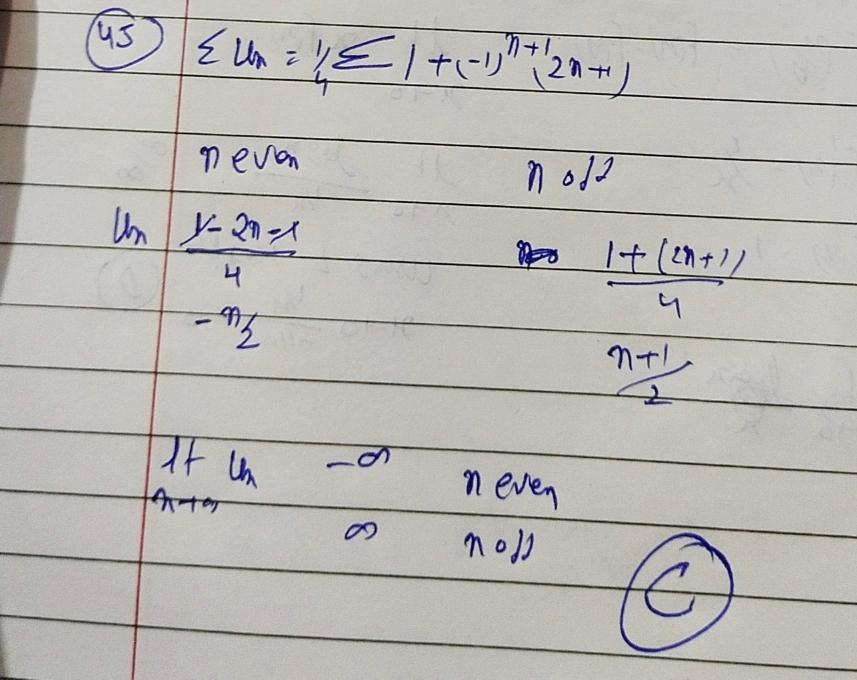 45 Σ Un = 1/4 Σ 1 + (-1)^n+1 (2n+1)
n even n odd
Un 1-2n-1/4 1+(2n+1)/4
-n/2 n+1/2
lt Un -∞ n even
n→∞
∞ n odd
C